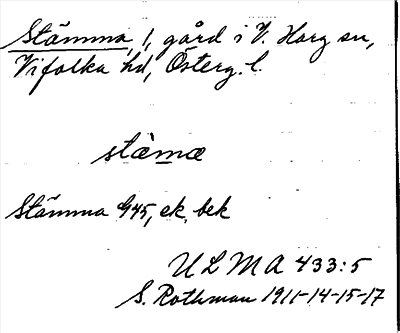 Stämma, 1, gård i V. Harg sn,
Vifolka hd, Österg. l.
stæ̀mæ
Stämma G45, ek, bek
ULMA 433:5
S. Rothman 1911-14-15-17